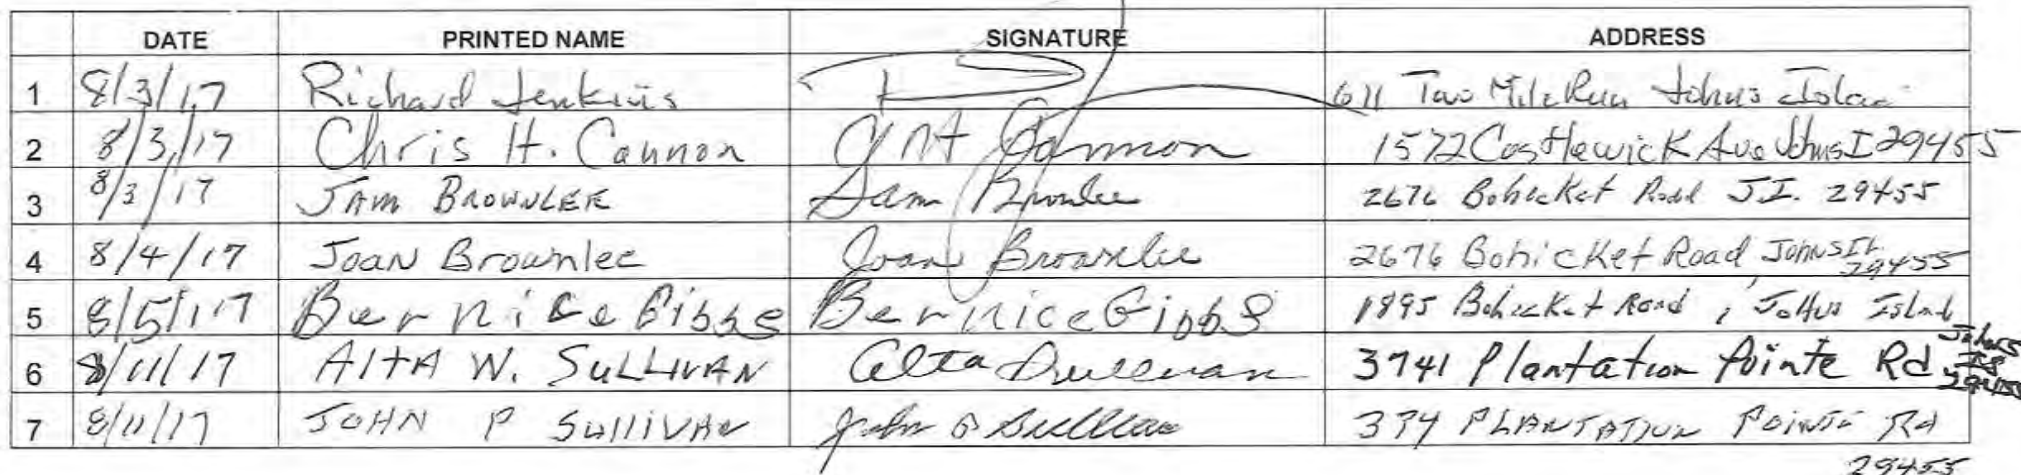 DATE PRINTED NAME SIGNATURE ADDRESS
1 8/3/17 Richard Jenkins 611 Two Mile Run Johns Islan
2 8/3/17 Chris H. Cannon Cannon 1572 Castlewick Ave Johns I 29455
3 8/3/17 SAM BROWNLEE Sam Brownlee 2676 Bohicket Road J.I. 29455
4 8/4/17 Joan Brownlee Joan Brownlee 2676 Bohicket Road Johns Il. 29455
5 8/5/17 Bernice Gibbs Bernice Gibbs 1895 Bohicket Road, Johns Island
6 8/11/17 AltA W. SULLIVAN Alta Sullivan 3741 Plantation Pointe Rd Johns Is 29455
7 8/11/17 JOHN P SULLIVAN John P Sullivan 374 PLANTATION POINTE Rd
29455